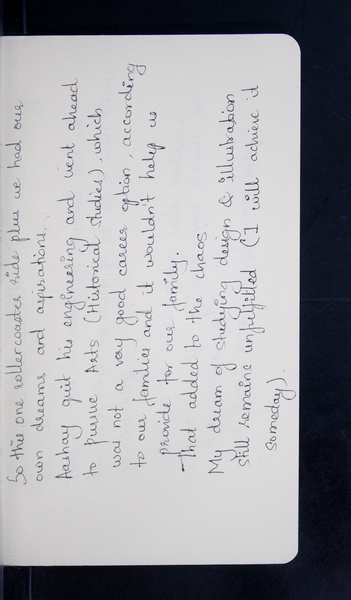 So this one rollercoaster ride plus we had our
own dreams and aspirations.
Aashay quit his engineering and went ahead
to pursue Arts (Historical Studies), which
was not a very good career option, according
to our families and it wouldn't help us
provide for our family.
That added to the chaos.
My dream of studying design & illustration
still remains unfulfilled (I will achieve it
someday).